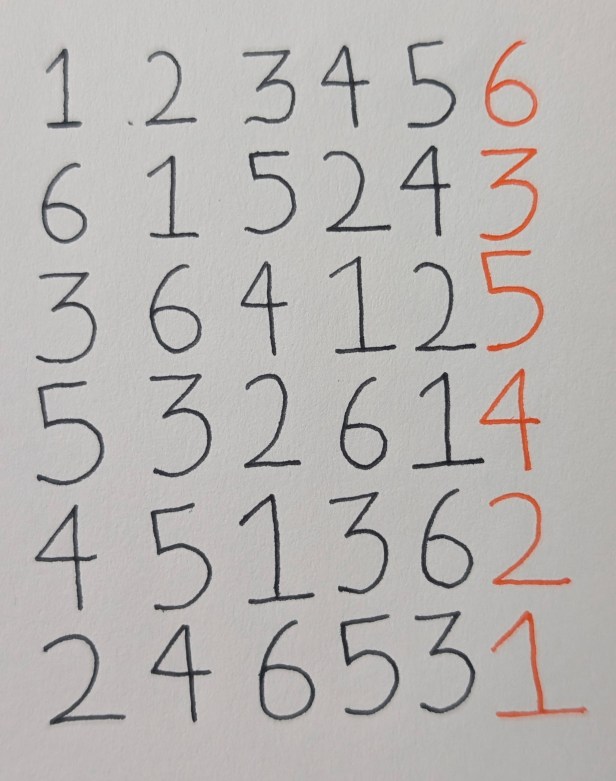 1 2 3 4 5 6
6 1 5 2 4 3
3 6 4 1 2 5
5 3 2 6 1 4
4 5 1 3 6 2
2 4 6 5 3 1